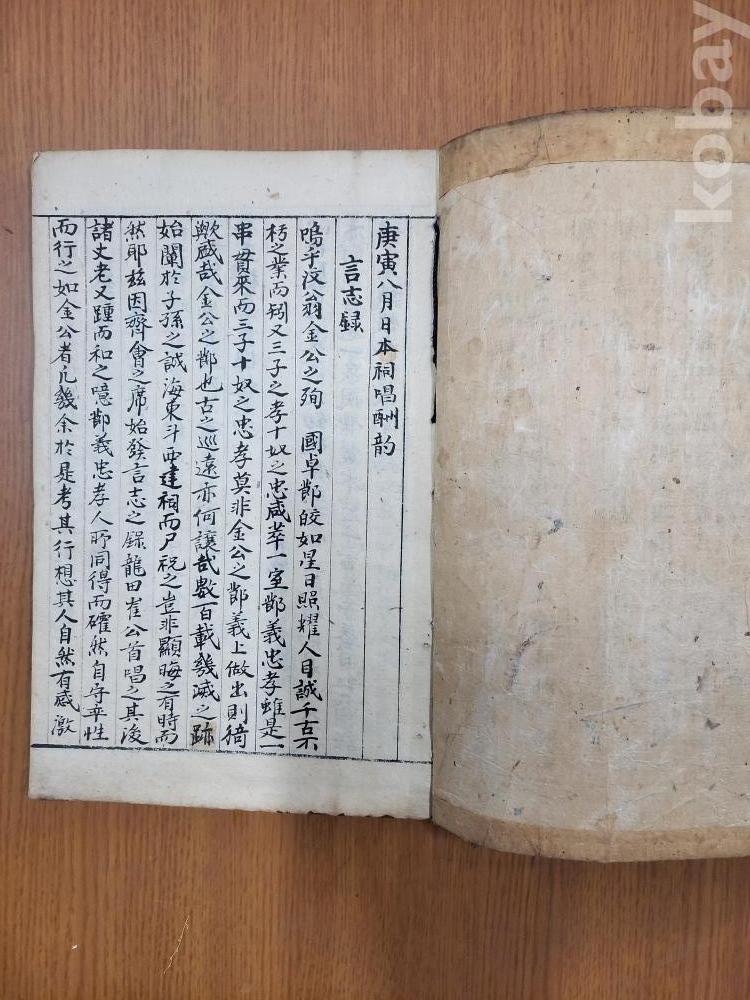 庚寅八月日本祠唱酬韵
言志録
嗚乎汶翁金公之殉 國卓節皎如星日照耀人目誠千古不
朽之業而矧又三子之孝十奴之忠咸萃一室節義忠孝雖是一
串貫來而三子十奴之忠孝莫非金公之節義上做出則猗
歟盛哉金公之節也古之巡遠亦何讓哉數百載幾滅之跡
始闡於子孫之誠海東斗西建祠而尸祝之豈非顯晦之有時而
然耶玆因齊會之席始發言志之錄龍田崔公首唱之其後
諸丈老又踵而和之噫節義忠孝人所同得而確然自守率性
而行之如金公者凡幾余於是考其行想其人自然有感激
kobay